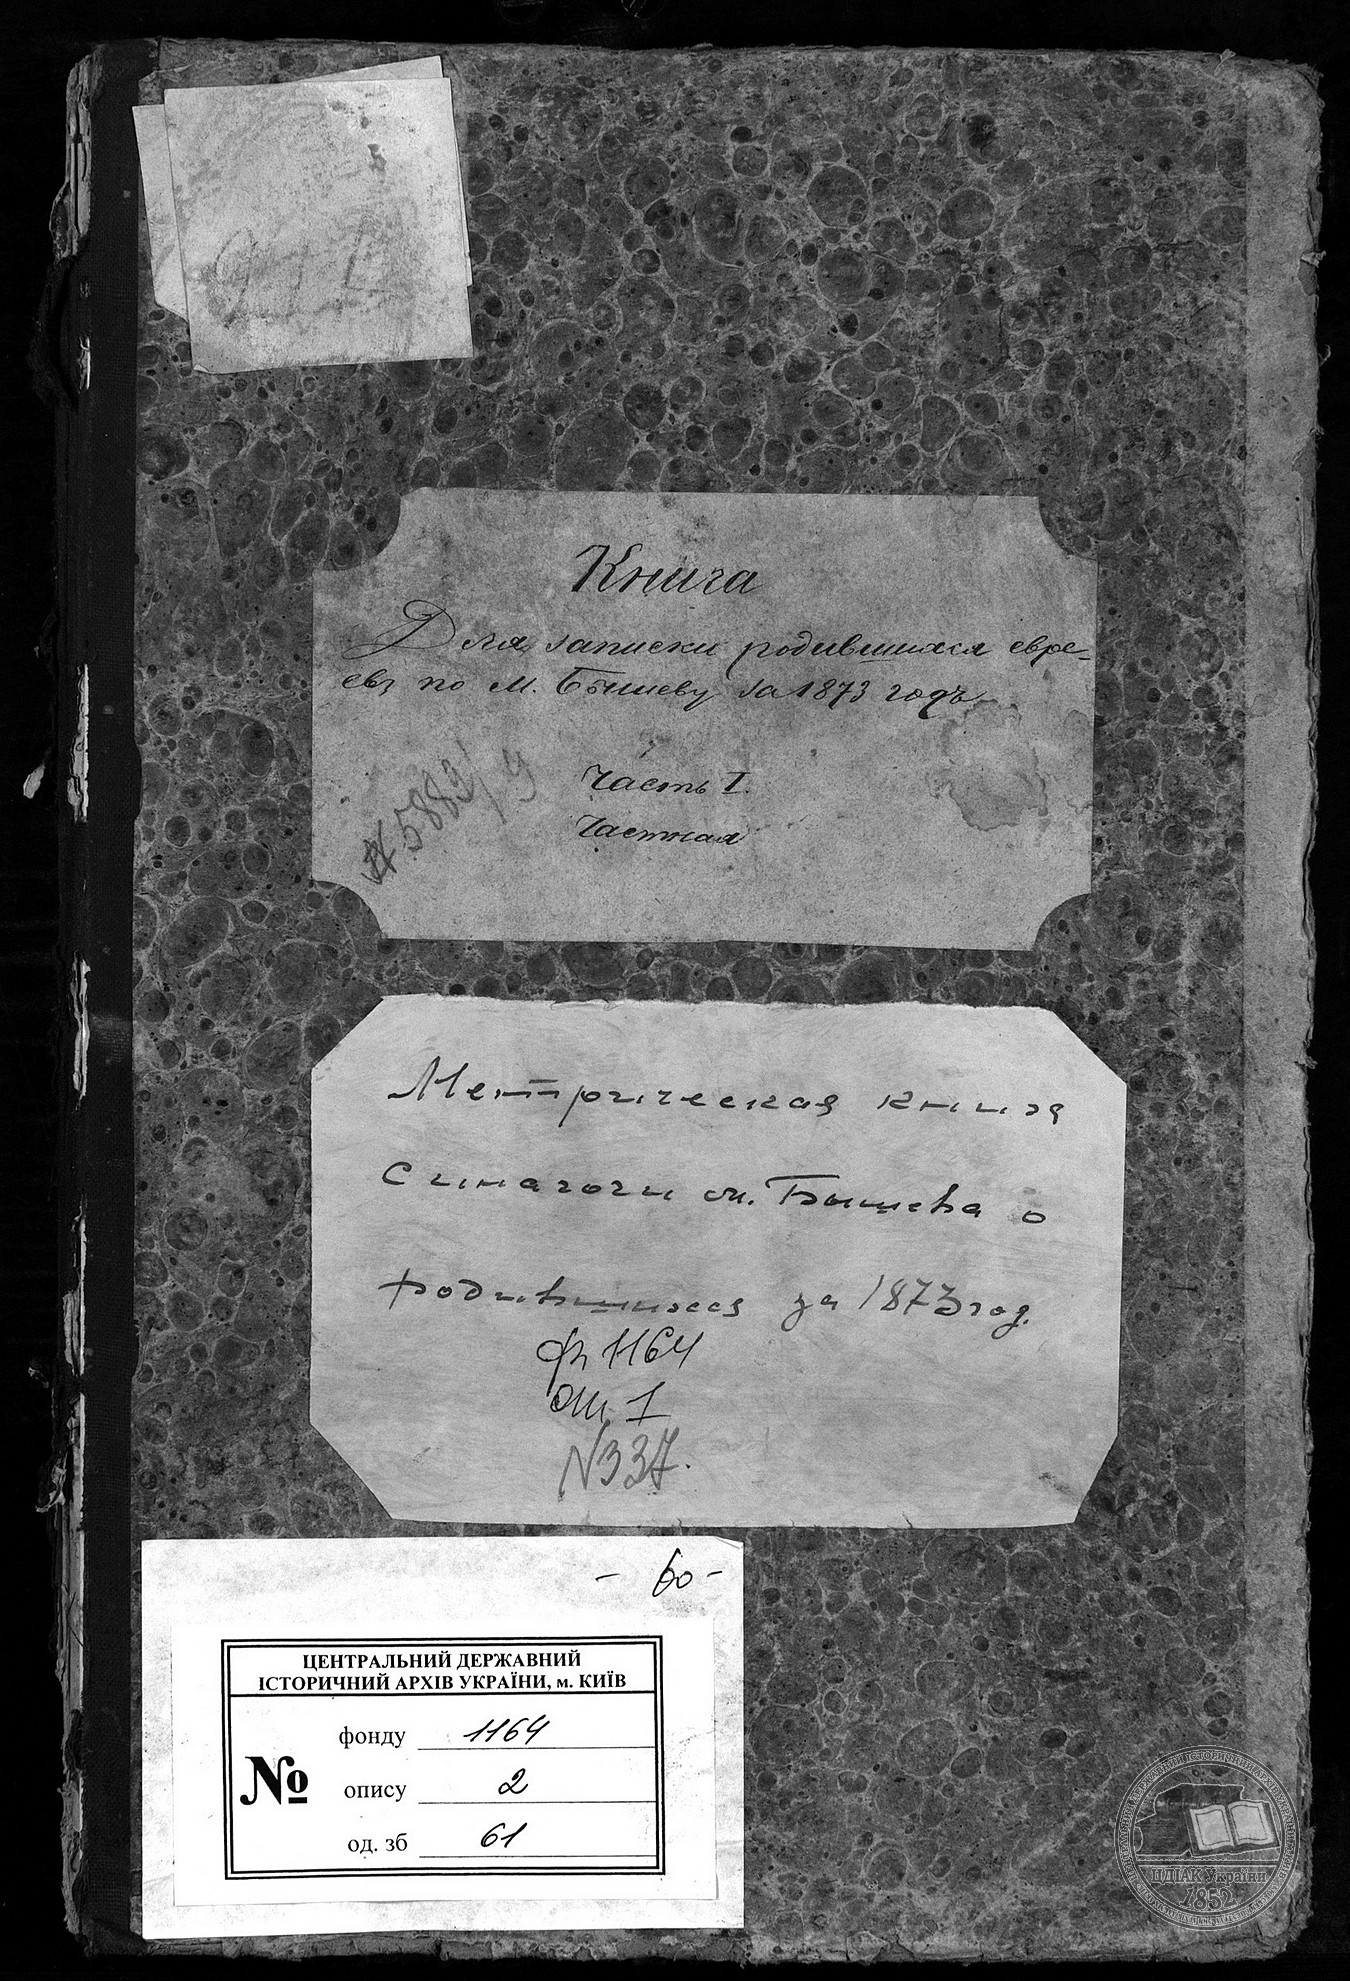 Книга
Для записки родившихся евре-
евъ по м. Бышеву за 1873 годъ
Часть I.
Частная
№ 5883/9
Метрическая книга
синагоги м. Бышева о
родившихся за 1873 год.
ф 1164
оп. 1
N 337.
- 60 -
ЦЕНТРАЛЬНИЙ ДЕРЖАВНИЙ
ІСТОРИЧНИЙ АРХІВ УКРАЇНИ, м. КИЇВ
№
фонду 1164
опису 2
од. зб 61
ЦДІАК України
1852